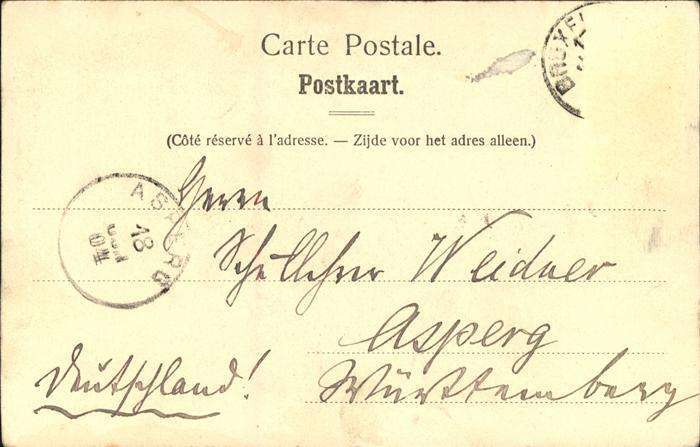 Carte Postale.
BRUXE
Postkaart.
(Côté réservé à l'adresse. — Zijde voor het adres alleen.)
ASPERG
18
04
Herrn
Schullehrer Weidner
Asperg
Deutschland!
Württemberg